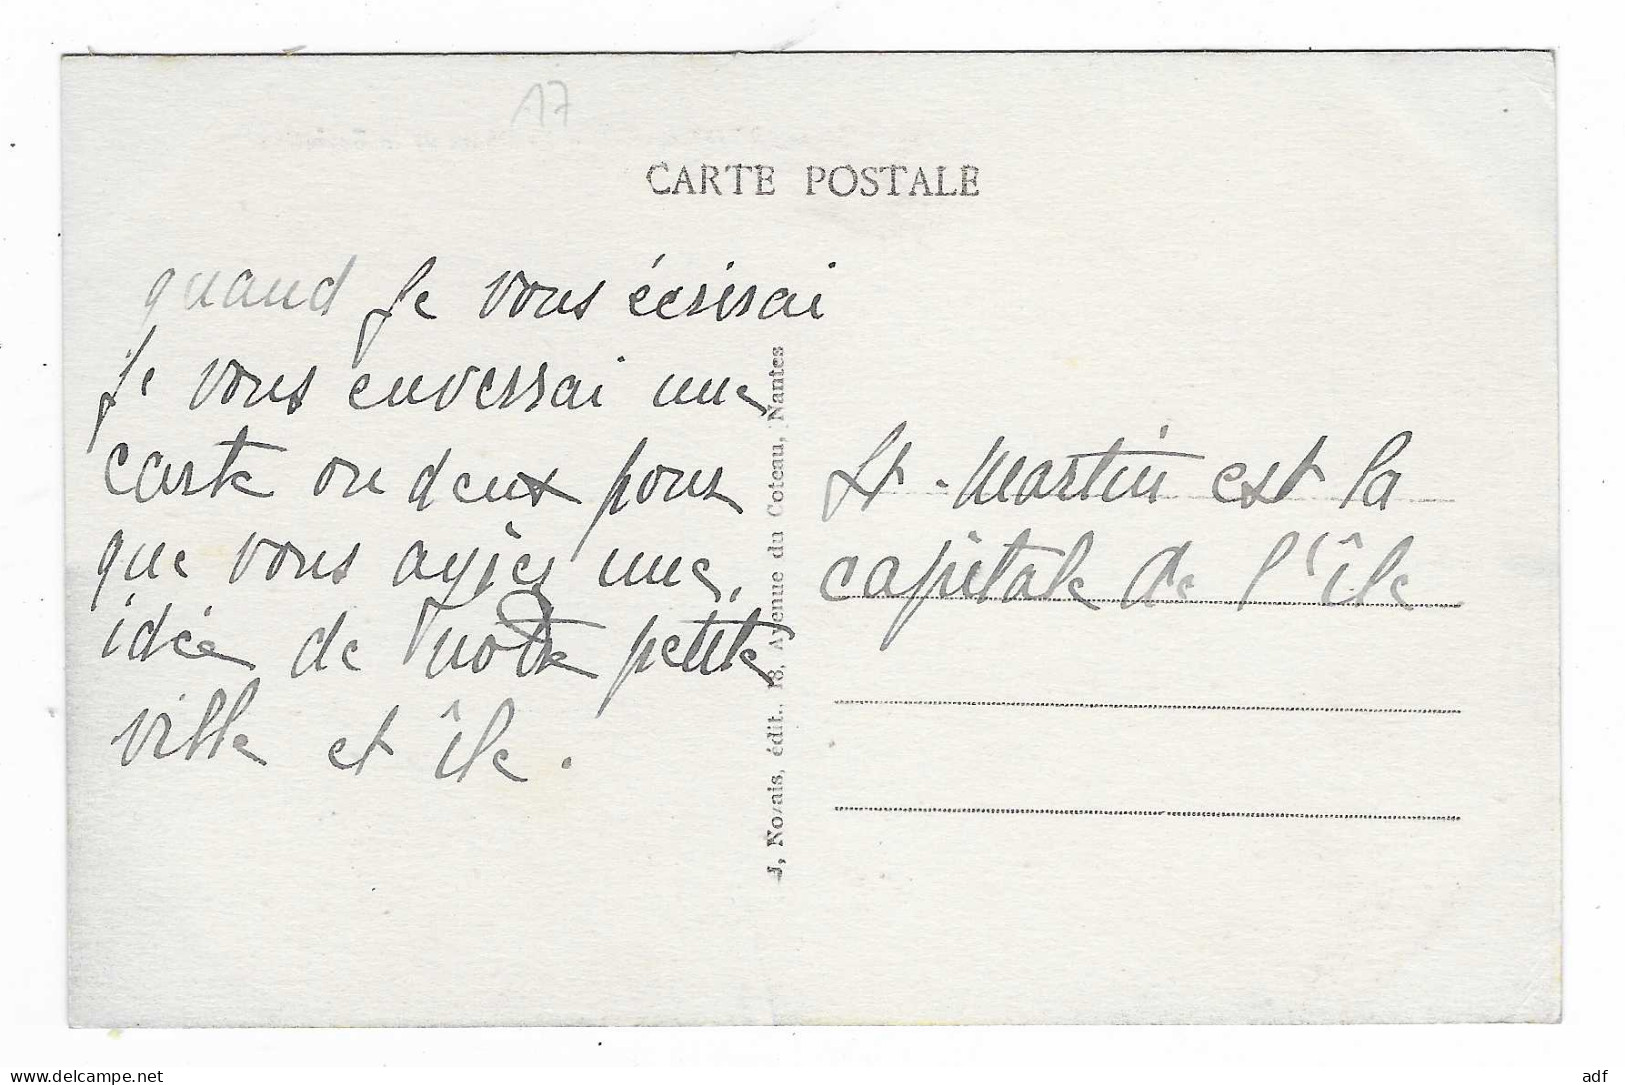 17
CARTE POSTALE
quand je vous écrirai
je vous enverrai une
carte ou deux pour
que vous ayiez une
idée de notre petite
ville et île.
J, Nozais, édit., 18, Avenue du Coteau, Nantes
St. Martin est la
capitale de l'île
www.delcampe.net
adf